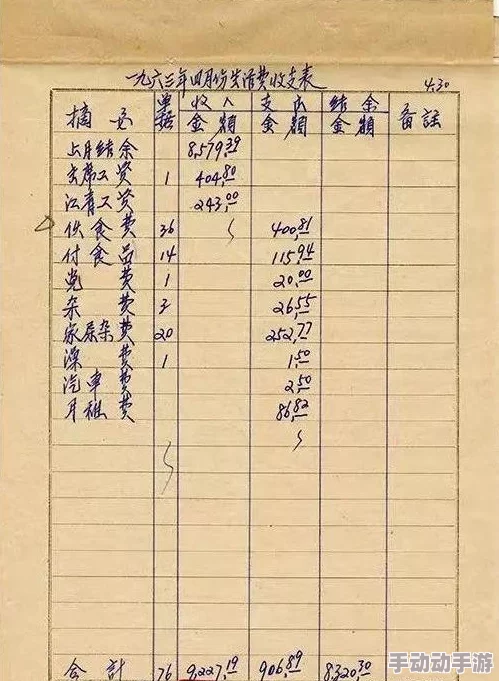 一九六三年四月份生活费收支表 4.30
摘要 单据 收入金额 支出金额 结余金额 备註
上月结余 8,579.39
主席工资 1 404.80
江青工资 243.00
伙食费 36 400.81
付食品 14 115.94
党费 1 20.00
杂费 3 26.55
家屋杂费 20 252.77
澡费 1 1.50
汽車费 2.50
月租费 86.82
合計 76 9,227.19 906.89 8320.30
手动动手游